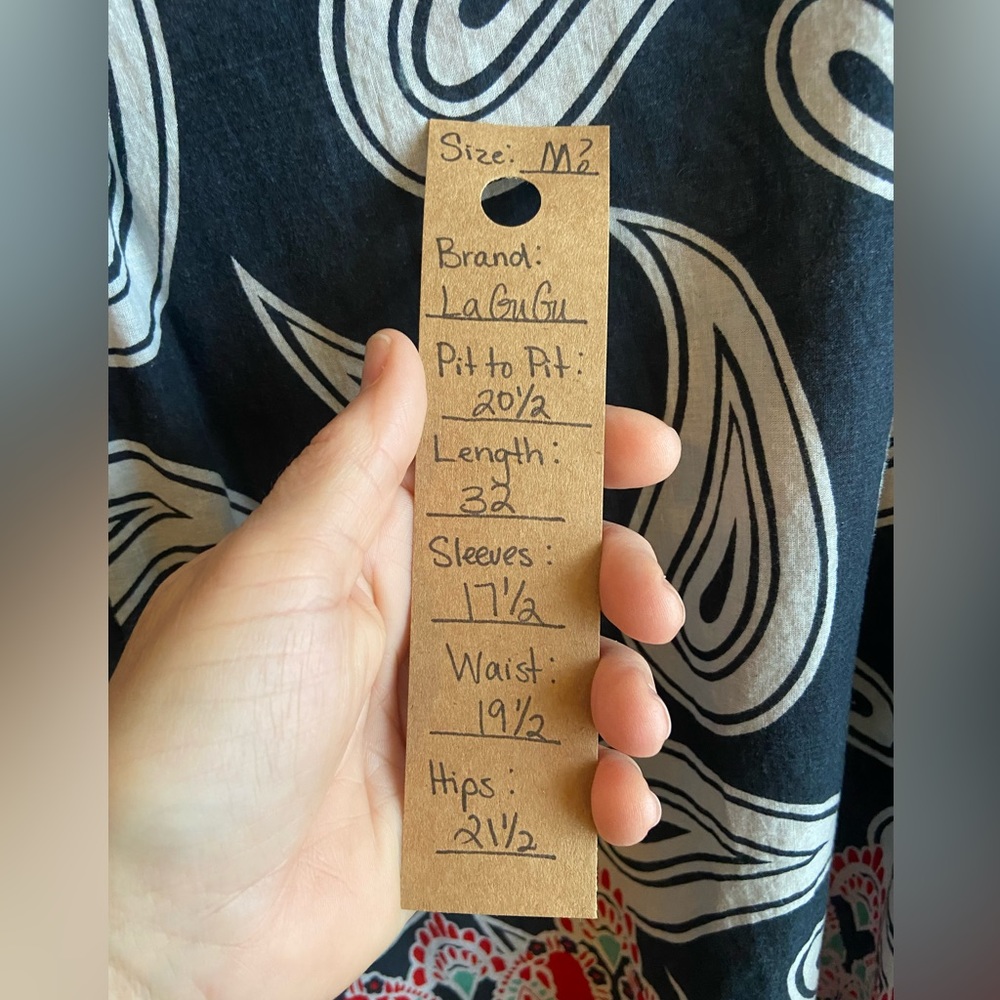 Size: M?
Brand:
LaGuGu
Pit to Pit:
20 1/2
Length:
32
Sleeves:
17 1/2
Waist:
19 1/2
Hips:
21 1/2